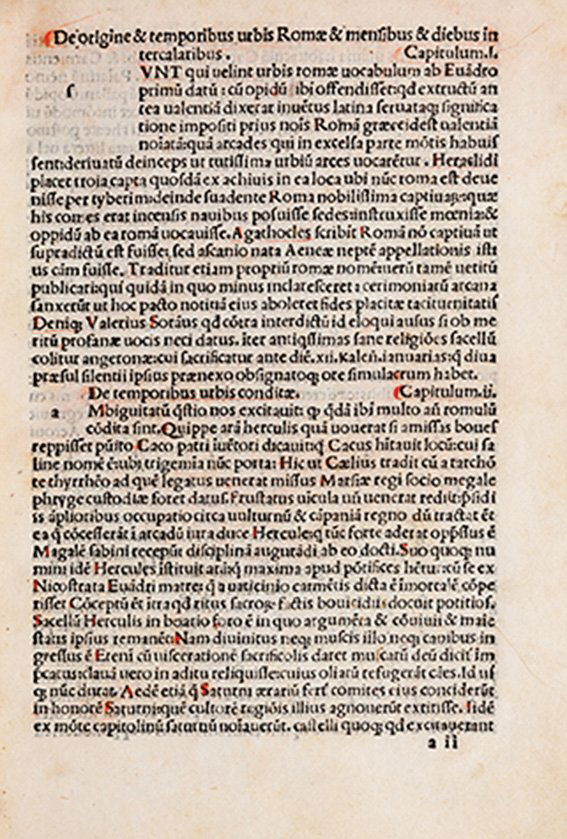 De origine & temporibus urbis Romæ & mensibus & diebus in
tercalaribus. Capitulum.I.
VNT qui uelint urbis romæ uocabulum ab Euādro
s primū datū: cū opidū ibi offendissetqd extructū an
tea ualentiā dixerat inuētus latina seruataq; significa
tione impositi prius nois Romā græceidest ualentiā
noiatā: quā arcades qui in excelsa parte mōtis habuis
sentderiuatū deinceps ut tutissima urbiū arces uocarētur. Heraclidi
placet troia capta quosdā ex achiuis in ea loca ubi nūc roma est deue
nisse per tyberim: deinde suadente Roma nobilissima captiuaꝝ quæ
his comes erat incensis nauibus posuisse sedes: instruxisse mœnia: &
oppidū ab ea romā uocauisse. Agathocles scribit Romā nō captiuā ut
supradictū est fuisse: sed ascanio nata Aeneæ neptē appellationis isti
us cām fuisse. Traditur etiam propriū romæ nomē: uerū tamē uetitū
publicari: qui quidā in quo minus inclaresceret a cerimoniarū arcana
sanxerūt ut hoc pacto notitiā eius aboleret fides placitæ taciturnitatis
Deniq; Valerius Soraus qd cōtra interdictū id eloqui ausus si ob me
ritū profanæ uocis neci datus. iter antiqssimas sane religiōes sacellū
colitur angeronæ: cui sacrificatur ante diē. xii. Kalen̄. ianuarias: q diua
præsul silentii ipsius prænexo obsignatoq; ore simulacrum habet.
De temporibus urbis conditæ. Capitulum.ii.
a Mbiguitatū q̄stio nos excitauit: q; qdā ibi multo an̄ romulū
cōdita sint. Quippe arā herculis quā uouerat si amissas boues
reppisset pūito Caco patri iuētori dicauit: q Cacus hītauit locū: cui sa
linæ nomē ē: ubi trigemia nūc porta: Hic ut Cælius tradit cū a tarchō
te thyrrhēo ad quē legatus uenerat missus Marsiæ regi socio megale
phryge custodiæ foret datus. Frustatus uicula un̄ uenerat redit: psidi
is āplioribus occupatio circa uulturnū & cāpaniā regno dū tractat ēt
ea q cōcesserāt ī arcadū iura duce Hercule: q tūc forte aderat oppssus ē
Magalē sabini recepūt disciplinā augurādi ab eo docti. Suo quoq; nu
mini idē Hercules istituit arā: q maxima apud pōtifices hētur: cū se ex
Nicostrata Euādri matre: q a uaticinio carmētis dicta ē īmortalē cōpe
risset Cōceptū ēt itra qd ritus sacroꝝ factis bouicidiis docuit potitios.
Sacellū Herculis in boario foro ē in quo argumēta & cōuiuii & maie
status ipsius remanēt: Nam diuinitus neq; muscis illo neq; canibus in
gressus ē Eteni cū uiscerationē sacrificolis daret muscarū deū dicit im
pcatus: claua uero in aditu reliquisse: cuius olfatū refugerāt cães. Id us
q; nūc durat. Aedē etiā q Saturni ærariū fert comites eius conciderūt
in honorē Saturni: quē cultorē regiōis illius agnouerūt extitisse. Iidē
ex mōte capitolinū saturnū noīauerūt. castelli quoq; qd excitauerant
a ii